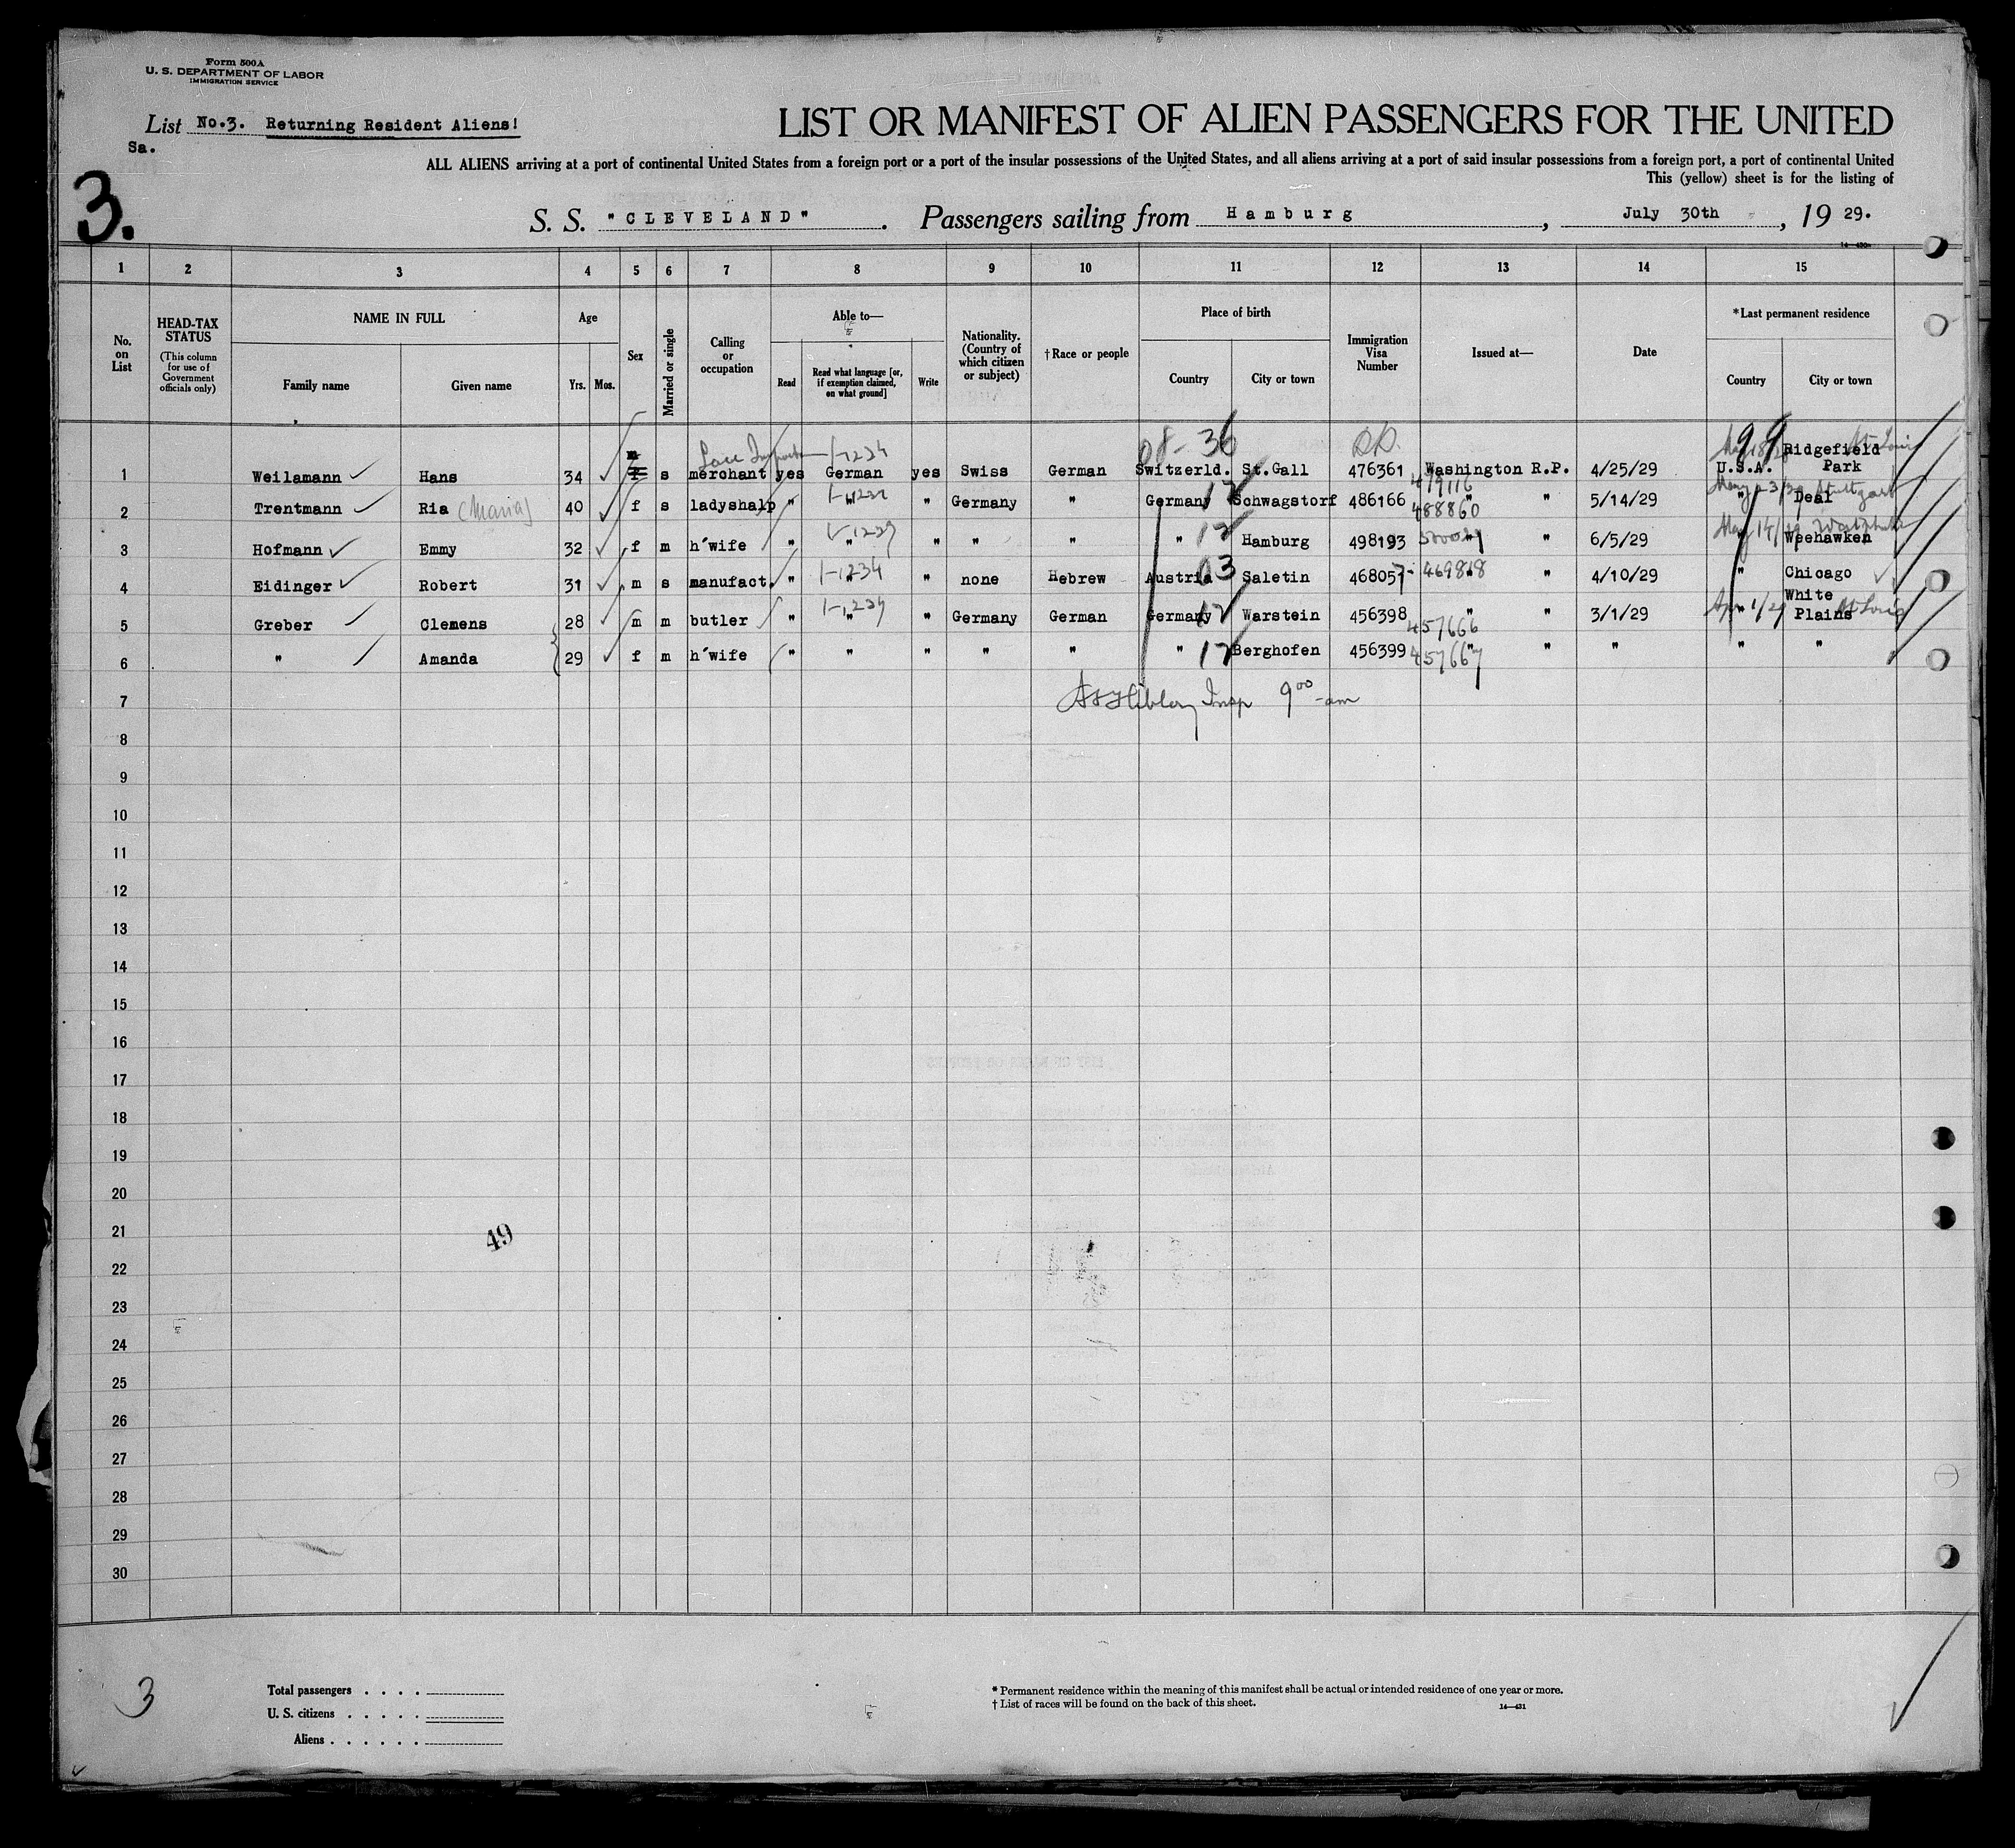 Form 500A
U. S. DEPARTMENT OF LABOR
IMMIGRATION SERVICE
List No.3. Returning Resident Aliens!
Sa.
3.
LIST OR MANIFEST OF ALIEN PASSENGERS FOR THE UNITED
ALL ALIENS arriving at a port of continental United States from a foreign port or a port of the insular possessions of the United States, and all aliens arriving at a port of said insular possessions from a foreign port, a port of continental United
This (yellow) sheet is for the listing of
S. S. "CLEVELAND". Passengers sailing from Hamburg, July 30th, 1929.
14-430a
1 2 3 4 5 6 7 8 9 10 11 12 13 14 15
No. on List
HEAD-TAX STATUS
(This column for use of Government officials only)
NAME IN FULL
Family name Given name
Age
Yrs. Mos.
Sex
Married or single
Calling or occupation
Able to—
Read
Read what language [or, if exemption claimed, on what ground]
Write
Nationality. (Country of which citizen or subject)
† Race or people
Place of birth
Country City or town
Immigration Visa Number
Issued at—
Date
*Last permanent residence
Country City or town
08-36 99
1 Weilamann Hans 34 m s merchant yes German yes Swiss German Switzerld. St.Gall 476361 Washington R.P. 4/25/29 U.S.A. Ridgefield Park
479116
2 Trentmann Ria (Maria) 40 f s ladyshalp " " " Germany " Germany Schwagstorf 486166 " " 5/14/29 " Deal
488860
3 Hofmann Emmy 32 f m h'wife " " " " " " Hamburg 498193 " " 6/5/29 " Weehawken
4 Eidinger Robert 31 m s manufact. " " " none Hebrew Austria Saletin 468057 469818 " " 4/10/29 " Chicago
5 Greber Clemens 28 m m butler " " " Germany German Germany Warstein 456398 " " 3/1/29 " White Plains
457666
6 " Amanda 29 f m h'wife " " " " " " Berghofen 456399 " " " " "
457667
7 Insp 9 00 am
8
9
10
11
12
13
14
15
16
17
18
19
20
21
49
22
23
24
25
26
27
28
29
30
3
Total passengers . . . .
U. S. citizens . . . . .
Aliens . . . . . .
* Permanent residence within the meaning of this manifest shall be actual or intended residence of one year or more.
† List of races will be found on the back of this sheet.
14-431